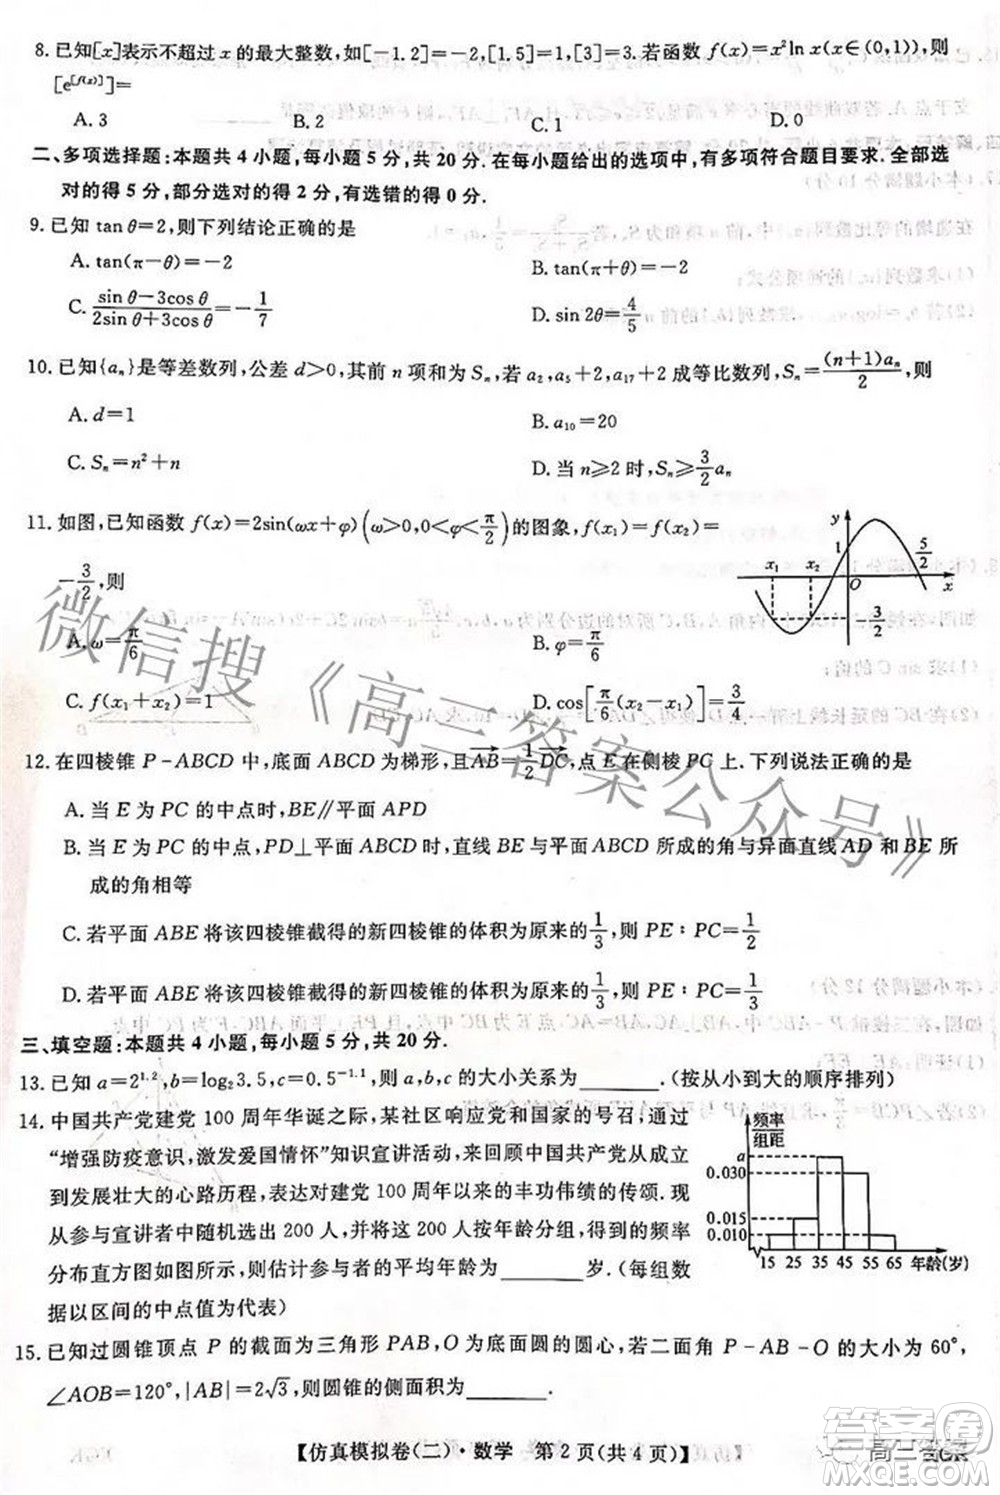 8. 已知[x]表示不超过 x 的最大整数,如[-1.2]=-2,[1.5]=1,[3]=3.若函数 f(x)=x²ln x(x∈(0,1)),则
[e^[f(x)]]=
A. 3 B. 2 C. 1 D. 0
二、多项选择题:本题共 4 小题,每小题 5 分,共 20 分.在每小题给出的选项中,有多项符合题目要求.全部选
对的得 5 分,部分选对的得 2 分,有选错的得 0 分.
9. 已知 tan θ=2,则下列结论正确的是
A. tan(π-θ)=-2 B. tan(π+θ)=-2
C. (sin θ-3cos θ)/(2sin θ+3cos θ)=-1/7 D. sin 2θ=4/5
10. 已知{aₙ}是等差数列,公差 d>0,其前 n 项和为 Sₙ,若 a₂,a₅+2,a₁₇+2 成等比数列,Sₙ=(n+1)aₙ/2,则
A. d=1 B. a₁₀=20
C. Sₙ=n²+n D. 当 n≥2 时,Sₙ≥3/2 aₙ
11. 如图,已知函数 f(x)=2sin(ωx+φ)(ω>0,0<φ<π/2)的图象,f(x₁)=f(x₂)=
-3/2,则
A. ω=π/6 B. φ=π/6
C. f(x₁+x₂)=1 D. cos[π/6(x₂-x₁)]=3/4
y
1
5/2
x₁ x₂ O x
-3/2
12. 在四棱锥 P-ABCD 中,底面 ABCD 为梯形,且AB→=1/2 DC→,点 E 在侧棱 PC 上.下列说法正确的是
A. 当 E 为 PC 的中点时,BE∥平面 APD
B. 当 E 为 PC 的中点,PD⊥平面 ABCD 时,直线 BE 与平面 ABCD 所成的角与异面直线 AD 和 BE 所
成的角相等
C. 若平面 ABE 将该四棱锥截得的新四棱锥的体积为原来的1/3,则 PE∶PC=1/2
D. 若平面 ABE 将该四棱锥截得的新四棱锥的体积为原来的1/3,则 PE∶PC=2/3
三、填空题:本题共 4 小题,每小题 5 分,共 20 分.
13. 已知 a=2^1.2,b=log₂3.5,c=0.5^-1.1,则 a,b,c 的大小关系为________.(按从小到大的顺序排列)
14. 中国共产党建党 100 周年华诞之际,某社区响应党和国家的号召,通过
“增强防疫意识,激发爱国情怀”知识宣讲活动,来回顾中国共产党从成立
到发展壮大的心路历程,表达对建党 100 周年以来的丰功伟绩的传颂.现
从参与宣讲者中随机选出 200 人,并将这 200 人按年龄分组,得到的频率
分布直方图如图所示,估计参与者的平均年龄为________岁.(每组数
据以区间的中点值为代表)
频率/组距
a
0.030
0.015
0.010
15 25 35 45 55 65 年龄(岁)
15. 已知过圆锥顶点 P 的截面为三角形 PAB,O 为底面圆的圆心,若二面角 P-AB-O 的大小为 60°,
∠AOB=120°,|AB|=2√3,则圆锥的侧面积为________.
【仿真模拟卷(二)·数学 第 2 页(共 4 页)】
微信搜《高三答案公众号》